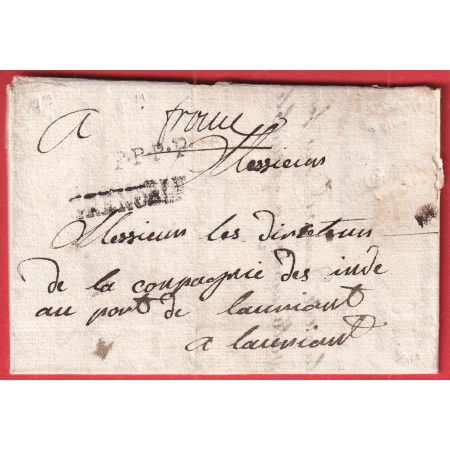 A
franc
P.P.P.P.
Messieurs
GRENOBLE
Messieurs les directeurs
de la conpagnie des inde
au port de lauriant
a lauriant